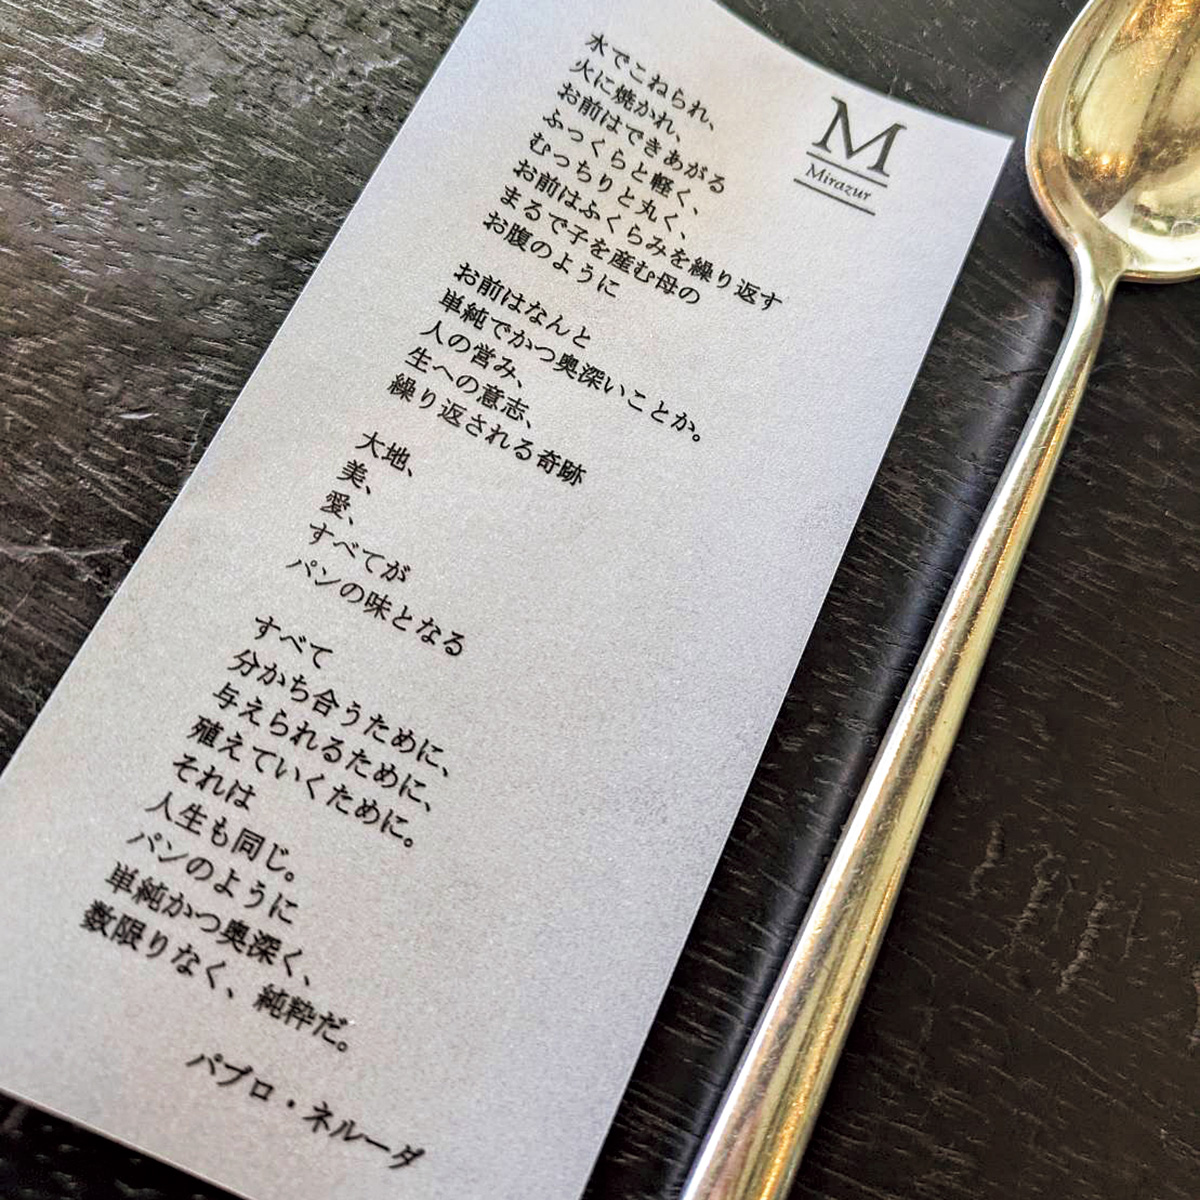 M
Mirazur
水でこねられ、
火に焼かれ、
お前はできあがる
ふっくらと軽く、
むっちりと丸く、
お前はふくらみを繰り返す
まるで子を産む母の
お腹のように
お前はなんと
単純でかつ奥深いことか。
人の営み、
生への意志、
繰り返される奇跡
大地、
美、
愛、
すべてが
パンの味となる
すべて
分かち合うために、
与えられるために、
殖えていくために。
それは
人生も同じ。
パンのように
単純かつ奥深く、
数限りなく、純粋だ。
パブロ・ネルーダ